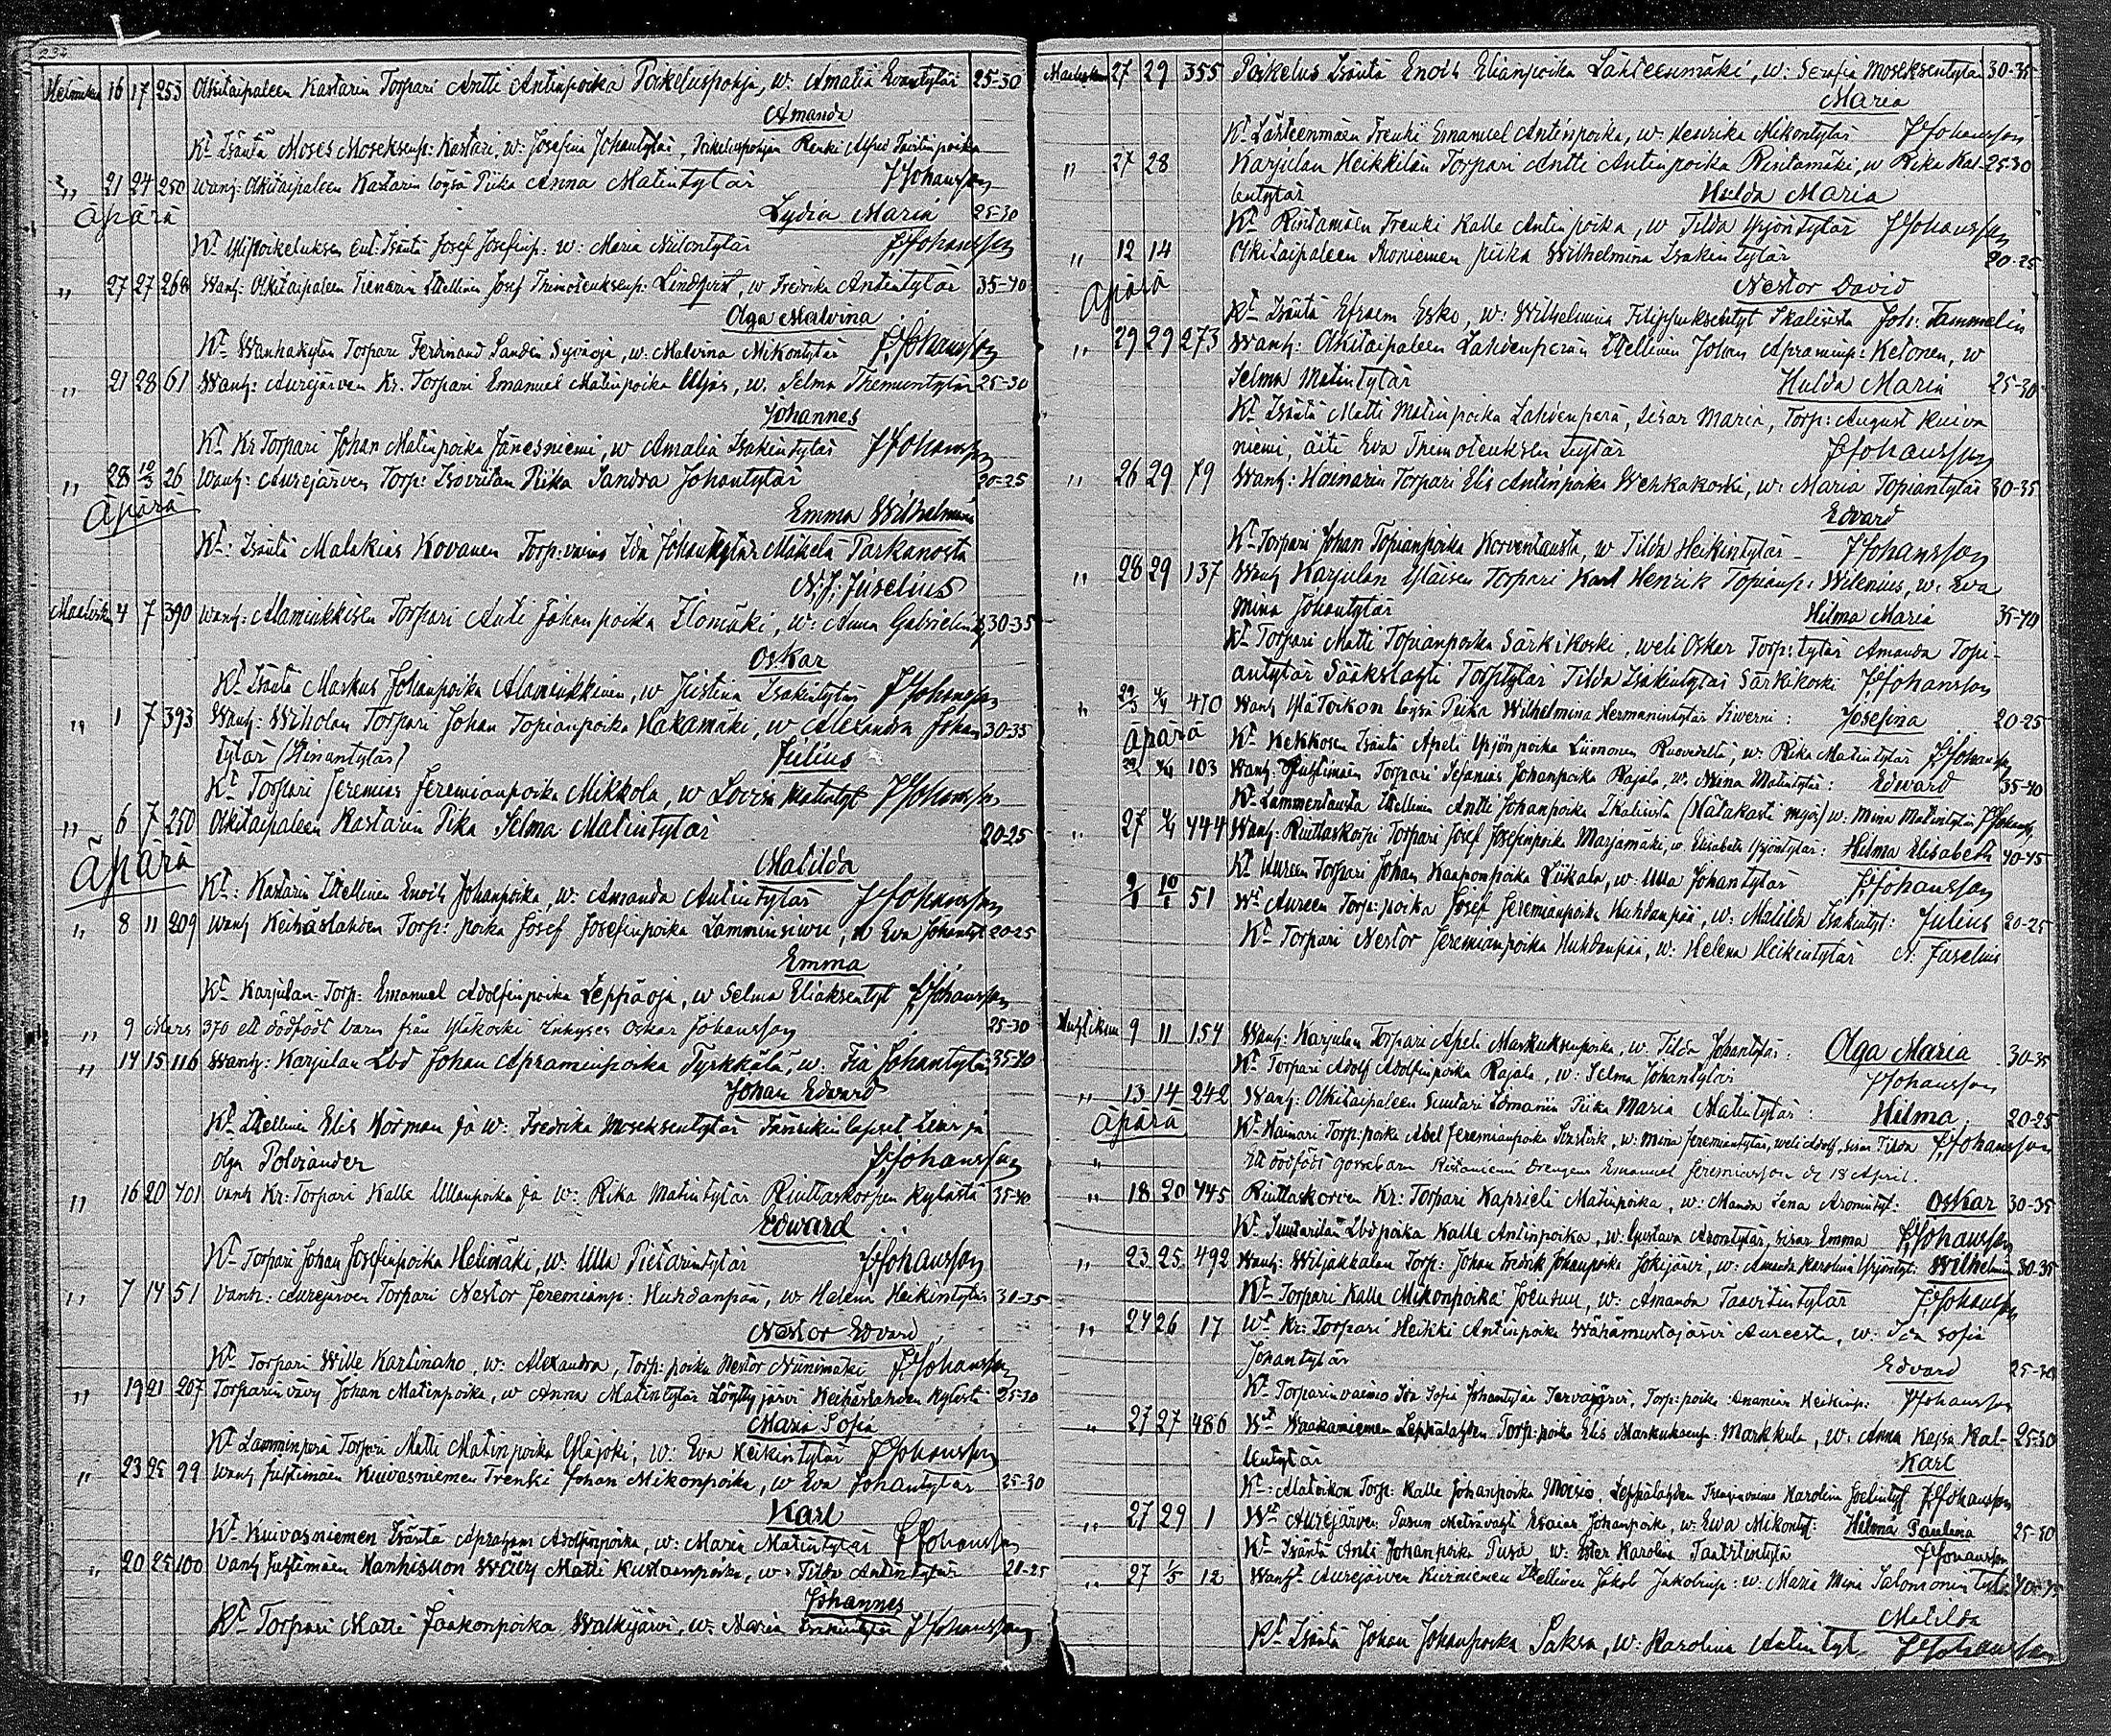 232
Helmikuu 16 17 253 Olkitaipaleen Kastarin Torpari Antti Antinpoika Poikeluspohja, w: Amalia Evantytär 25-30
Amanda
Kt Isäntä Moses Moseksenp: Kastari, w: Josefina Johantytär, Poikeluspohjan Renki Alfred
„ 21 24 250 wanh: Olkitaipaleen Kastarin löysä Piika Anna Matintytär J Johansson
Äpärä Lydia Maria 25-30
Kt Ylipoikeluksen ent: Isäntä Josef Josefinp: w: Maria Niilontytär J Johansson
„ 27 27 268 Wanh: Olkitaipaleen Itellinen Josef Thimoteuksenp: Lindqvist, w Fredrika Antintytär 35-40
Olga Malvina
Kt Wanhakylän Torpari Ferdinand Sandin w: Malvina Mikontytär J Johansson
„ 21 28 61 Wanh: Aurejärven Kr. Torpari Emanuel Matinpoika w. Selma 25-30
Johannes
Kt Kr Torpari Johan Matinpoika Jänesniemi, w Amalia Isakintytär J Johansson
„ 28 10/3 26 Wanh: Aurejärven Torp: Piika Sandra Johantytär 20-25
Äpärä Emma Wilhelmina
Kt: Isäntä Malakias Kovanen Torp: vaimo Ida Johantytär Mäkelä Parkanosta
N. J. Juselius
Maalisk 4 7 390 wanh: Alaminkkisen Torpari Anti Johanpoika Ilomäki, w: Anna 30-35
Oskar
Kt Isäntä Markus Johanpoika Alaminkkinen, w Justina Isakintytär J Johansson
„ 1 7 393 Wanh: Wiholan Torpari Johan Topianpoika Hakamäki, w Alexandra Johan 30-35
tytär Julius
Kt Torpari Jeremias Jeremianpoika Mikkola, w Lovisa Matintyt J Johansson
„ 6 7 250 Olkitaipaleen Kastarin Pika Selma Matintytär 20-25
Äpärä Matilda
Kt: Kastarin Itellinen Enoch Johanpoika, w: Amanda Antintytär J Johansson
„ 8 11 209 wanh Keihäslahden Torp: poika Josef Josefinpoika Lamminsivu, w Eva Johantyt 20-25
Emma
Kt Karjulan Torp: Emanuel Adolfinpoika Leppäoja, w Selma Eliaksentyt J Johansson
„ 9 Mars 370 ett dödfödt barn från Yläkoski Inhyses Oskar Johansson 25-30
„ 14 15 116 wanh: Karjulan Lbd Johan Apraminpoika Tyrkkälä, w: Fia Johantytär 35-40
Johan Edvard
Kt Itellinen Elis Körman ja w: Fredrika Moseksentytär lapset ja
Olga Polviander J Johansson
„ 16 20 401 vanh Kr: Torpari Kalle Ullanpoika ja w: Rika Matintytär Riuttaskorpen kylästä 35-40
Edward
Kt Torpari Johan Josefinpoika Helimäki, w: Ulla Pietarintytär J Johansson
„ 7 14 51 vanh: Aurejärven Torpari Nestor Jeremianp: Huhdanpää, w Helena Heikintytär 30-35
Nestor Edvard
Kt Torpari Wille Kartinaho, w: Alexandra, Torp: poika Nestor Niinimäki J Johansson
„ 19 21 207 Torparin vävy Johan Matinpoika, w Anna Matintytär Löyttyjärvi Keihäslahden kylästä 25-30
Maria Sofia
Kt Lamminperä Torpari Matti Matinpoika Yläjoki, w: Eva Heikintytär J Johansson
„ 23 25 99 Wanh Kuivasniemen Trenki Johan Mikonpoika, w Eva Johantytär 25-30
Karl
Kt Kuivasniemen Isäntä Apraham Adolfinpoika, w: Maria Matintytär J Johansson
„ 20 25 100 vanh Hanhisuon Wävy Matti Kustaanpoika, w: Tilda Antintytär 20-25
Johannes
Kt Torpari Matti Jaakonpoika Walkijärvi, w: Maria Isakintytär J Johansson
Maaliskuu 27 29 355 Poikelus Isäntä Enoch Elianpoika Lähteenmäki, w: Serafia Moseksentytär 30-35
Maria
Kt Lähteenmäen Trenki Emanuel Antinpoika, w: Hendrika Mikontytär J Johansson
„ 27 28 Karjulan Heikkilän Torpari Antti Antinpoika Rintamäki, w Rika Kal- 25-30
lentytär Hulda Maria
Kt Rintamäen Trenki Kalle Antinpoika, w Tilda Yrjöntytär J Johansson
„ 12 14 Olkitaipaleen Moniemen piika Wilhelmina Isakintytär 20-25
Äpärä Nestor David
Kt Isäntä Efraem Esko, w: Wilhelmina Filippuksentyt Ikalisista Joh: Tammelin
„ 29 29 273 Wanh: Olkitaipaleen Lahdenperän Itellinen Johan Apraminp: Ketonen, w
Selma Matintytär Hulda Maria 25-30
Kt Isäntä Matti Matinpoika Lahdenperä, sisar Maria, Torp: August Kuiva
niemi, äiti Eva Thimoteuksen tytär J Johansson
„ 26 29 79 Wanh: Hainarin Torpari Elis Antinpoika Wehkakoski, w: Maria Topiantytär 30-35
Edvard
Kt Torpari Johan Topianpoika Korventausta, w Tilda Heikintytär J Johansson
„ 28 29 137 Wanh Karjulan Yläisen Torpari Karl Henrik Topianp: Wilenius, w: Eva
Mina Johantytär Hilma Maria 35-40
Kt Torpari Matti Topianpoika Särkikoski, weli Oskar Torp: tytär Amanda Topi-
antytär Sääkslahti Torp:tytär Tilda Isakintytär Särkikoski J Johansson
„ 29/3 4/4 470 Wanh Ylä Toikon löysä Piika Wilhelmina Hermanintytär Siverni: Josefina 20-25
Äpärä Kt Kekkosen Isäntä Apeli Yrjönpoika Liinonen Ruovedeltä, w: Rika Matintytär J Johansson
4/4 103 Wanh: Torpari Sefanias Johanpoika Rajala, w: Mina Matintytär: Edward 35-40
Kt Lammentausta Itellinen Antti Johanpoika Ikalisista w: Mina Matintytär J Johansson
„ 27 4/4 444 Wanh: Riuttaskorpi Torpari Josef Josefinpoika Marjamäki, w. Elisabeth Yrjöntytär: Hilma Elisabeth 40-45
Kt Kureen Torpari Johan Kaaponpoika Liikala, w: Ulla Johantytär J Johansson
51 Wt Aureen Torp: poika Josef Jeremianpoika Huhdanpää, w: Matilda Isakintyt: Julius 20-25
Kt Torpari Nestor Jeremianpoika Huhdanpää, w: Helena Heikintytär N. Juselius
Huhtikuu 9 11 154 Wanh: Karjulan Torpari Apeli Markuksenpoika, w. Tilda Johantytär: Olga Maria 30-35
Kt Torpari Adolf Adolfinpoika Rajala, w: Selma Johantytär J Johansson
„ 13 14 242 Wanh: Olkitaipaleen Suutari Piika Maria Matintytär: Hilma 20-25
Äpärä Kt Hainari Torp: poika Abel Jeremianpoika w: Mina Jeremiantytär, weli Adolf, sisar Tilda J Johansson
„ Ett dödfödt gossebarn Ristaniemi Drengens Emanuel Jeremiasson d. 18 April.
„ 18 20 445 Riuttaskorven Kr: Torpari Kaprieli Matinpoika, w: Manda Lena Aronintyt: Oskar 30-35
Kt Suutarilan Lbd poika Kalle Antinpoika, w: Gustava Arontytär, sisar Emma J Johansson
„ 23 25 492 Wanh: Wiljakkalan Torp: Johan Fredrik Johanpoika Jokijärvi, w: Amanda Karolina Yrjöntyt: Wilhelmina 30-35
Kt Torpari Kalle Mikonpoika Joensuu, w: Amanda Taavitintytär J Johansson
„ 24 26 17 Wt Kr: Torpari Heikki Antinpoika Wähämustajärvi Aureesta, w: Ida Sofia
Johantytär Edvard 25-30
Kt Torparin vaimo Ida Sofia Johantytär Tervajärvi, Torp: poika Ananias Heikinp: J Johansson
„ 27 27 486 Wt Waakaniemen Leppälahden Torp: poika Elis Markuksenp: Markkula, w: Anna Kajsa Kal- 25-30
lentytär Karl
Kt: Alatoikon Torp: Kalle Johanpoika Moisio, Leppälahden Trenginvaimo Karolina Joelintyt J Johansson
„ 27 29 1 Wt Aurejärven Pusun Metsävahti Esaias Johanpoika, w: Ewa Mikontyt: Hilma Paulina 25-30
Kt Isäntä Anti Johanpoika Pusu, w: Ester Karolina Taavitintytär J Johansson
„ 27 1/5 12 Wanht Aurejärven Kurniemen Itellinen Jakob Jakobinp: w: Maria Mina Salomonin tytär 40-45
Matilda
Kt Isäntä Johan Johanpoika Saksa, w: Karolina Antintyt J Johansson